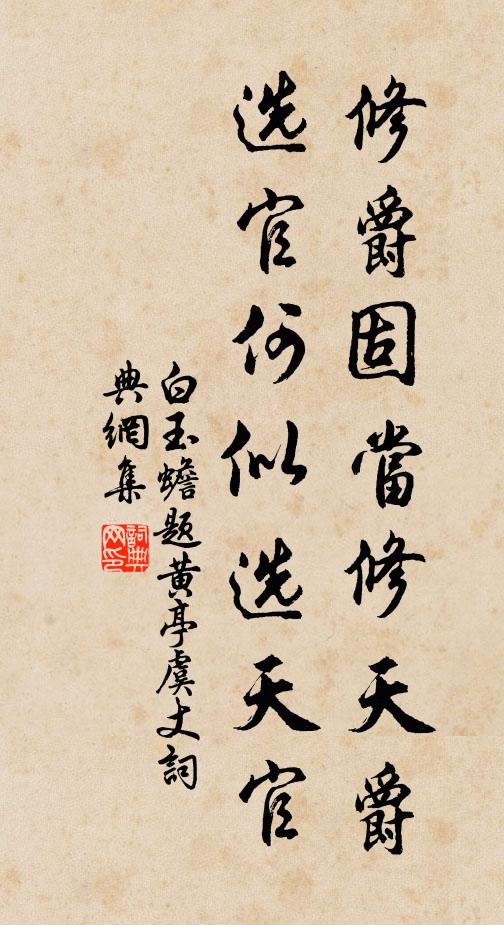 修爵固當修天爵
选官何似选天官
白玉蟾题黄亭虞丈詞
典網集
詞典網印